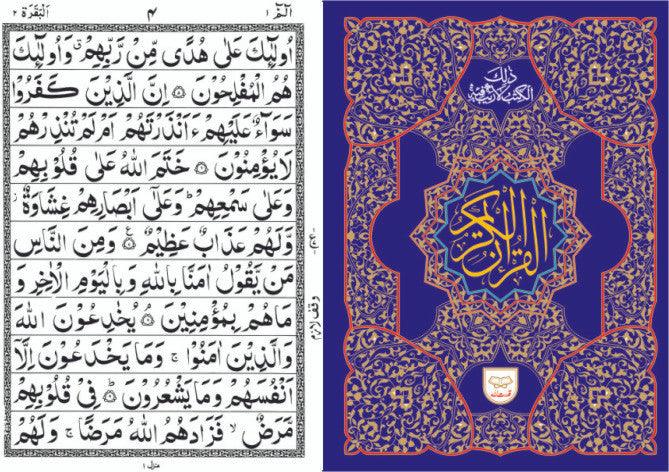 الٓمّٓ ١
٤
البقرة ٢
اُولٰٓئِكَ عَلٰى هُدًى مِّنْ رَّبِّهِمْ ۗ وَاُولٰٓئِكَ
هُمُ الْمُفْلِحُوْنَ ۝٥ اِنَّ الَّذِيْنَ كَفَرُوْا
سَوَآءٌ عَلَيْهِمْ ءَاَنْذَرْتَهُمْ اَمْ لَمْ تُنْذِرْهُمْ
لَا يُؤْمِنُوْنَ ۝٦ خَتَمَ اللّٰهُ عَلٰى قُلُوْبِهِمْ
وَعَلٰى سَمْعِهِمْ ؕ وَعَلٰٓى اَبْصَارِهِمْ غِشَاوَةٌ ز
وَّلَهُمْ عَذَابٌ عَظِيْمٌ ۝٧ ع وَمِنَ النَّاسِ
مَنْ يَّقُوْلُ اٰمَنَّا بِاللّٰهِ وَبِالْيَوْمِ الْاٰخِرِ وَ
مَا هُمْ بِمُؤْمِنِيْنَ ۝٨ يُخٰدِعُوْنَ اللّٰهَ
وَالَّذِيْنَ اٰمَنُوْا ۚ وَمَا يَخْدَعُوْنَ اِلَّآ
اَنْفُسَهُمْ وَمَا يَشْعُرُوْنَ ۝٩ؕ فِيْ قُلُوْبِهِمْ
مَّرَضٌ ۙ فَزَادَهُمُ اللّٰهُ مَرَضًا ۚ وَلَهُمْ
وقف لازم
منزل ١
ذٰلك
الكتٰب لا ريب فيه
القرآن الكريم